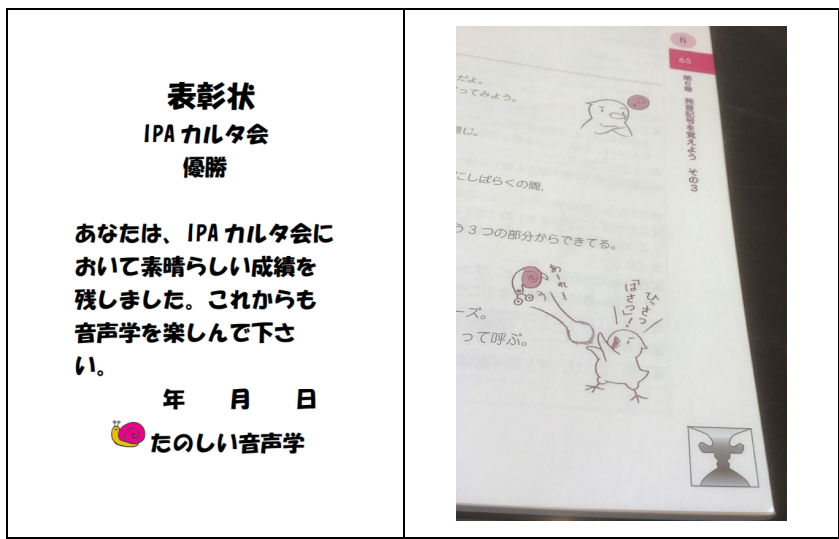 表彰状
IPAカルタ会
優勝
あなたは、IPAカルタ会に
おいて素晴らしい成績を
残しました。これからも
音声学を楽しんで下さ
い。
年 月 日
たのしい音声学
65
第6章 発音記号を覚えよう その3
だよ。
ってみよう。
同じ。
にしばらくの間、
う3つの部分からできてる。
あ〜れ〜
ひっさつ
「ばさつ」!
ーズ。
って呼ぶ。